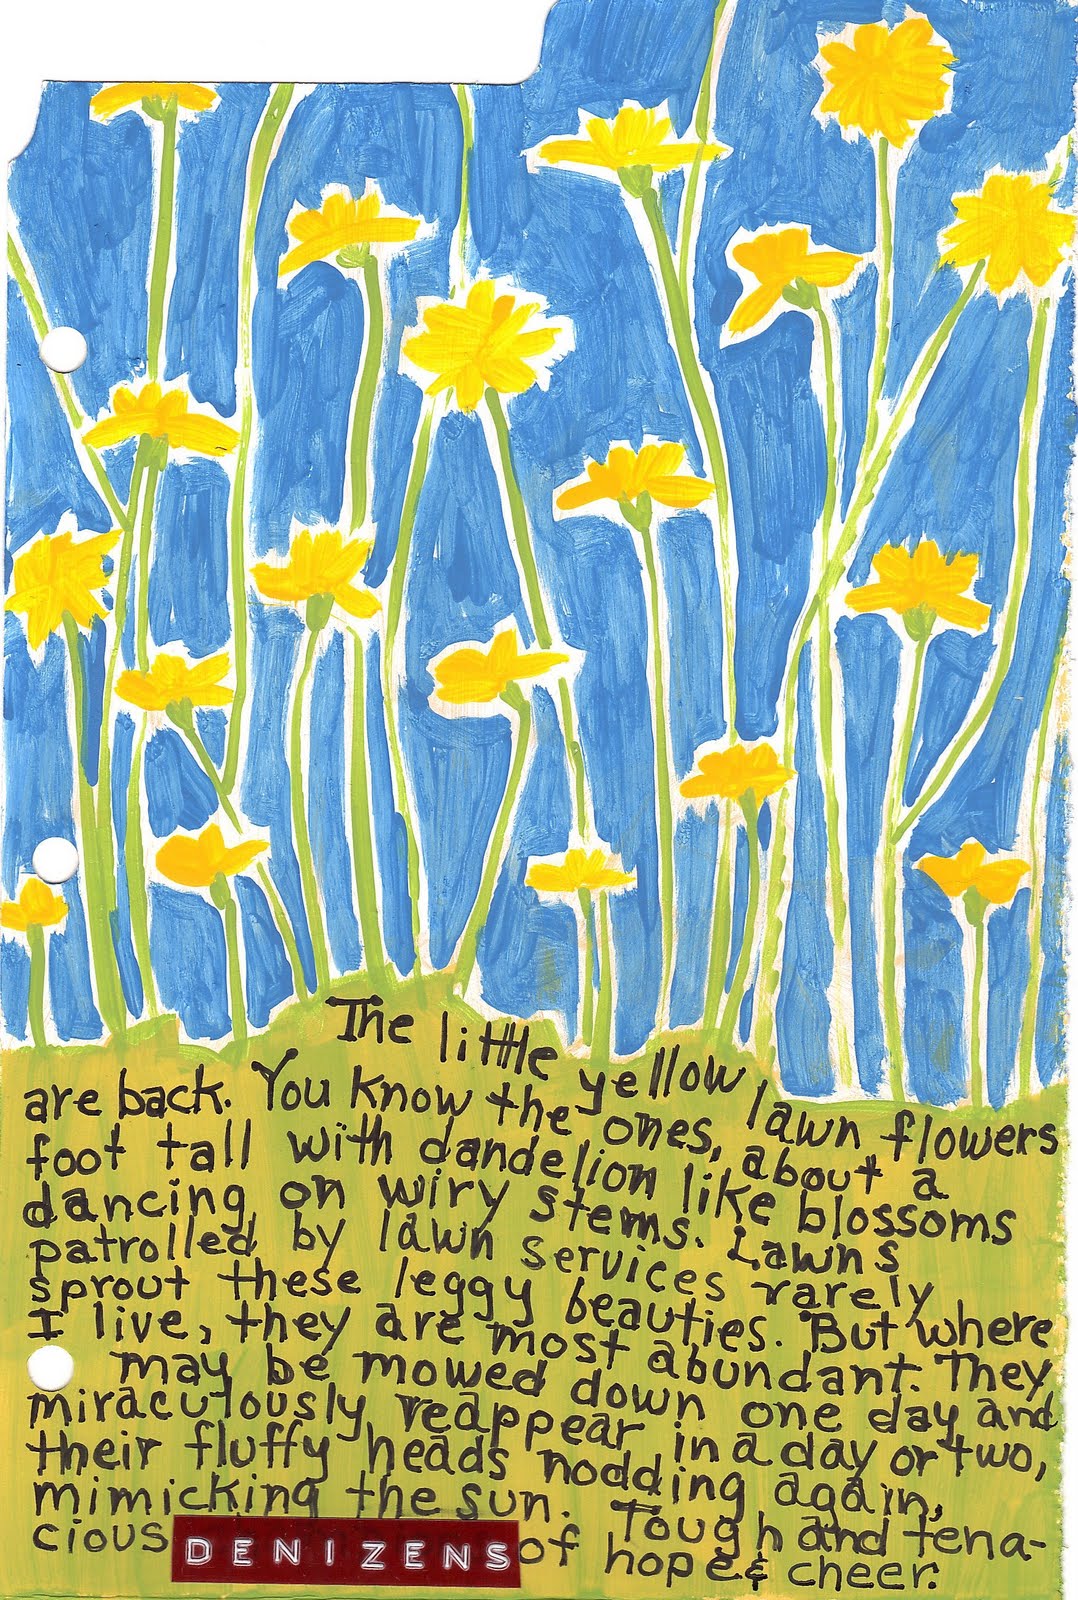 The little yellow lawn flowers
are back. You know the ones, about a
foot tall with dandelion like blossoms
dancing on wiry stems. Lawns
patrolled by lawn services rarely
sprout these leggy beauties. But where
I live, they are most abundant. They
may be mowed down one day and
miraculously reappear in a day or two,
their fluffy heads nodding again,
mimicking the sun. Tough and tena-
cious DENIZENS of hope & cheer.